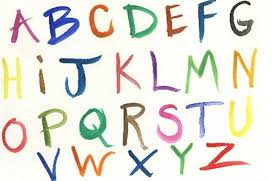 A B C D E F G
H i J K L M N
O P Q R S T U
V W X Y Z